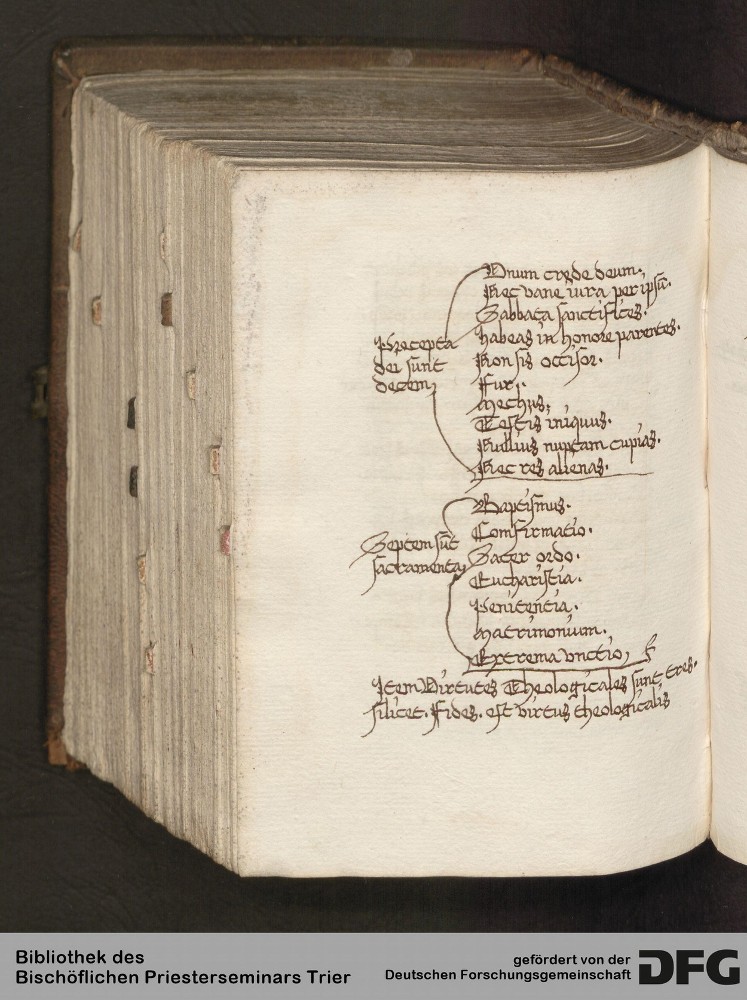 Vnum crede deum.
Nec vane iura per ipsū.
Sabbata sanctifices.
habeas in honore parentes.
Precepta
dei sunt
decem,
Non sis occisor.
Fur,
Mechus,
Testis iniquus.
Nullius nuptam cupias.
Nec res alienas.
Baptismus.
Comfirmatio.
Septem sūt
sacramenta
Sacer ordo.
Eucharistia.
Penitentia.
Matrimonium.
Extrema vnctio,
Item Virtutes Theologicales sunt tres.
silicet. Fides. est virtus theologicalis
Bibliothek des
Bischöflichen Priesterseminars Trier
gefördert von der
Deutschen Forschungsgemeinschaft
DFG